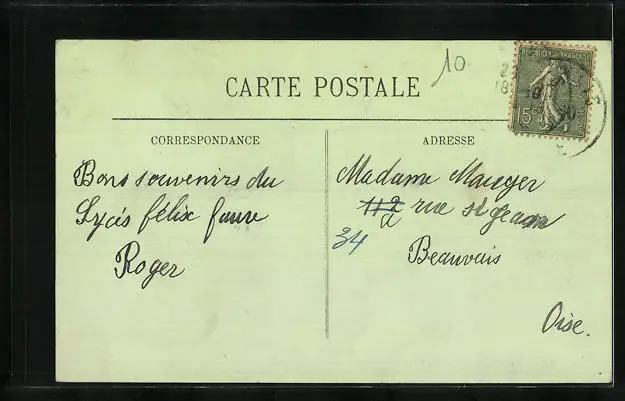 10
CARTE POSTALE
REPUBLIQUE FRANÇAISE
15c
CORRESPONDANCE
ADRESSE
Bons souvenirs du
Lycés félix faure
Roger
Madame Mauger
112 rue st Jean
34
Beauvais
Oise.